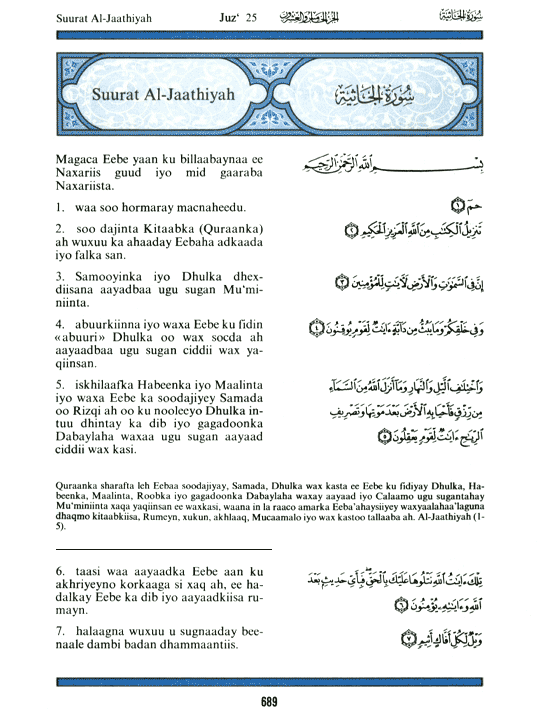 Suurat Al-Jaathiyah Juz‘ 25 الجزء الخامس والعشرون سُورَةُ الجَاثِيَة
Suurat Al-Jaathiyah سُورَةُ الجَاثِيَة
Magaca Eebe yaan ku billaabaynaa ee
Naxariis guud iyo mid gaaraba
Naxariista.
بِسْمِ اللَّهِ الرَّحْمَٰنِ الرَّحِيمِ
1. waa soo hormaray macnaheedu.
حمٓ ١
2. soo dajinta Kitaabka (Quraanka)
ah wuxuu ka ahaaday Eebaha adkaada
iyo falka san.
تَنزِيلُ الْكِتَٰبِ مِنَ اللَّهِ الْعَزِيزِ الْحَكِيمِ ٢
3. Samooyinka iyo Dhulka dhex-
diisana aayadbaa ugu sugan Mu‘mi-
niinta.
إِنَّ فِي السَّمَٰوَٰتِ وَالْأَرْضِ لَءَايَٰتٍ لِّلْمُؤْمِنِينَ ٣
4. abuurkiinna iyo waxa Eebe ku fidin
«abuuri» Dhulka oo wax socda ah
aayaadbaa ugu sugan ciddii wax ya-
qiinsan.
وَفِي خَلْقِكُمْ وَمَا يَبُثُّ مِن دَآبَّةٍ ءَايَٰتٌ لِّقَوْمٍ يُوقِنُونَ ٤
5. iskhilaafka Habeenka iyo Maalinta
iyo waxa Eebe ka soodajiyey Samada
oo Rizqi ah oo ku nooleeyo Dhulka in-
tuu dhintay ka dib iyo gagadoonka
Dabaylaha waxaa ugu sugan aayaad
ciddii wax kasi.
وَاخْتِلَٰفِ الَّيْلِ وَالنَّهَارِ وَمَآ أَنزَلَ اللَّهُ مِنَ السَّمَآءِ
مِن رِّزْقٍ فَأَحْيَا بِهِ الْأَرْضَ بَعْدَ مَوْتِهَا وَتَصْرِيفِ
الرِّيَٰحِ ءَايَٰتٌ لِّقَوْمٍ يَعْقِلُونَ ٥
Quraanka sharafta leh Eebaa soodajiyay, Samada, Dhulka wax kasta ee Eebe ku fidiyay Dhulka, Ha-
beenka, Maalinta, Roobka iyo gagadoonka Dabaylaha waxay aayaad iyo Calaamo ugu sugantahay
Mu‘miniinta xaqa yaqiinsan ee waxkasi, waana in la raaco amarka Eeba'ahaysiiyey waxyaalahaa'laguna
dhaqmo kitaabkiisa, Rumeyn, xukun, akhlaaq, Mucaamalo iyo wax kastoo tallaaba ah. Al-Jaathiyah (1-
5).
6. taasi waa aayaadka Eebe aan ku
akhriyeyno korkaaga si xaq ah, ee ha-
dalkay Eebe ka dib iyo aayaadkiisa ru-
mayn.
تِلْكَ ءَايَٰتُ اللَّهِ نَتْلُوهَا عَلَيْكَ بِالْحَقِّ فَبِأَيِّ حَدِيثٍ بَعْدَ
اللَّهِ وَءَايَٰتِهِ يُؤْمِنُونَ ٦
7. halaagna wuxuu u sugnaaday bee-
naale dambi badan dhammaantiis.
وَيْلٌ لِّكُلِّ أَفَّاكٍ أَثِيمٍ ٧
689